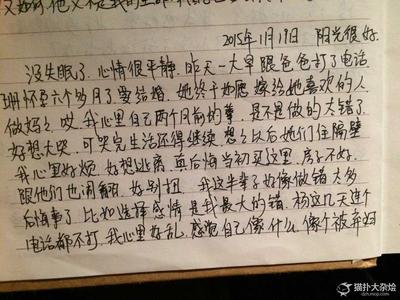 2015年1月17日 阳光很好.
没失眠了.心情很平静.昨天一大早跟爸爸打了电话
珊怀孕六个多月了.要结婚.她终于如愿嫁给她喜欢的人
做妈妈.哎.我心里自己两个月前的事.是不是做的太错了.
好想大哭.可哭完生活还得继续.想想以后她们住隔壁
我心里好烦.好想逃离.真后悔当初买这里.房子不好.
跟他们也闹翻.好别扭. 我这半辈子好像做错太多
后悔事了.比如选择感情是我最大的错.杨这几天连个
电话都不打.我心里好乱.感觉自己像什么.像个被弃妇
猫扑大杂烩
dzh.mop.com